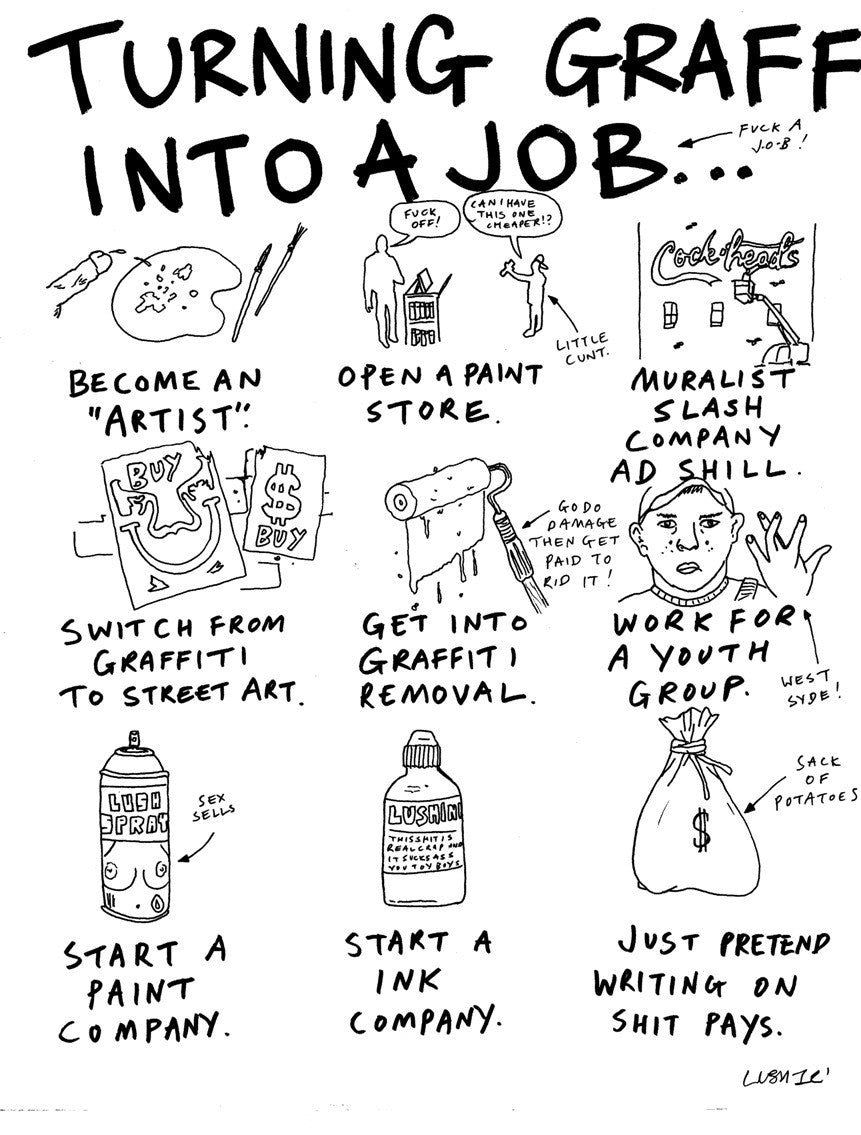 TURNING GRAFF
INTO A JOB...
FUCK A
J.O-B!
FUCK
OFF!
CAN I HAVE
THIS ONE
CHEAPER!?
LITTLE
CUNT.
Cock-head's
BECOME AN
"ARTIST".
OPEN A PAINT
STORE.
MURALIST
SLASH
COMPANY
AD SHILL.
BUY
$
BUY
GO DO
DAMAGE
THEN GET
PAID TO
RID IT!
SWITCH FROM
GRAFFITI
TO STREET ART.
GET INTO
GRAFFITI
REMOVAL.
WORK FOR
A YOUTH
GROUP.
WEST
SYDE!
LUSH
SPRAY
SEX
SELLS
LUSHINK
THIS SHIT IS
REAL CRAP AND
IT SUCKS ASS
YOU TOY BOYS
$
SACK
OF
POTATOES
START A
PAINT
COMPANY.
START A
INK
COMPANY.
JUST PRETEND
WRITING ON
SHIT PAYS.